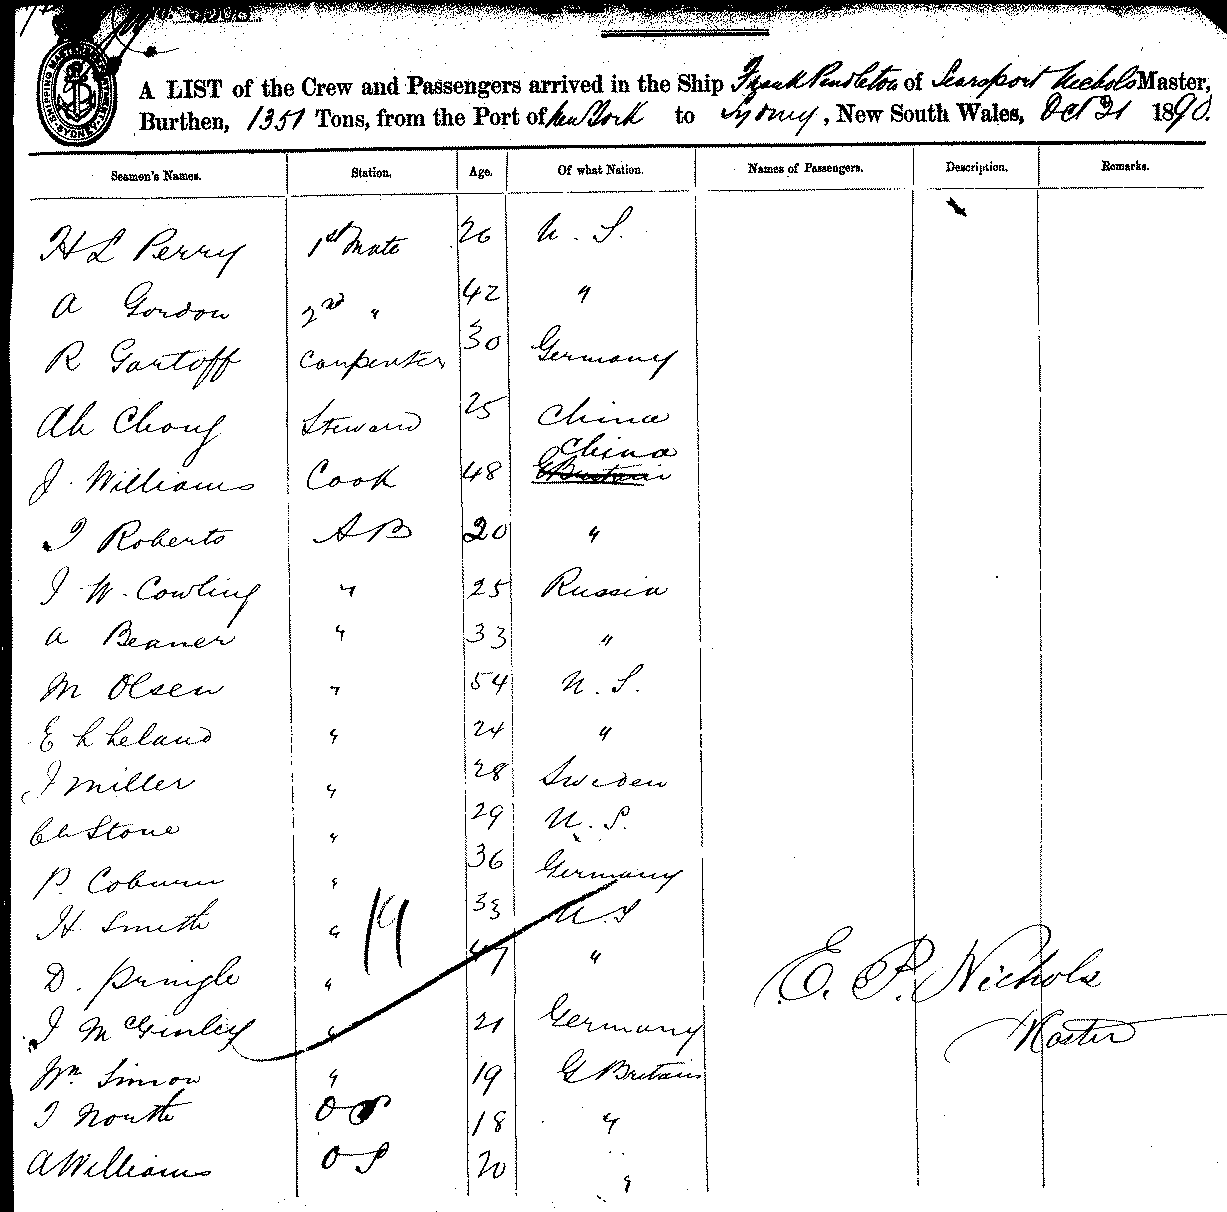 A LIST of the Crew and Passengers arrived in the Ship Frank Pendleton of Searsport Nichols Master,
Burthen, 1351 Tons, from the Port of New York to Sydney, New South Wales, Oct 31 1890.
Seamen's Names. Station. Age. Of what Nation. Names of Passengers. Description. Remarks.
H L Perry 1st Mate 26 U. S.
A Gordon 2nd " 42 "
R Gartoff Carpenter 30 Germany
Ah Chong Steward 25 China
China
J. Williams Cook 48 G Britain
J Roberts AB 20 "
J. W. Cowling " 25 Russia
A Beaner " 33 "
M Olsen " 54 U. S.
E L Leland " 24 "
J Miller " 28 Sweden
Ch Stone " 29 U. S.
P. Coburn " 36 Germany
H. Smith " 33 U. S
19
D. Pringle " 47 "
E. P. Nichols
J McGinley " 21 Germany
Master
Wm Simon " 19 G Britain
J North OS 18 "
A Williams OS 20 "